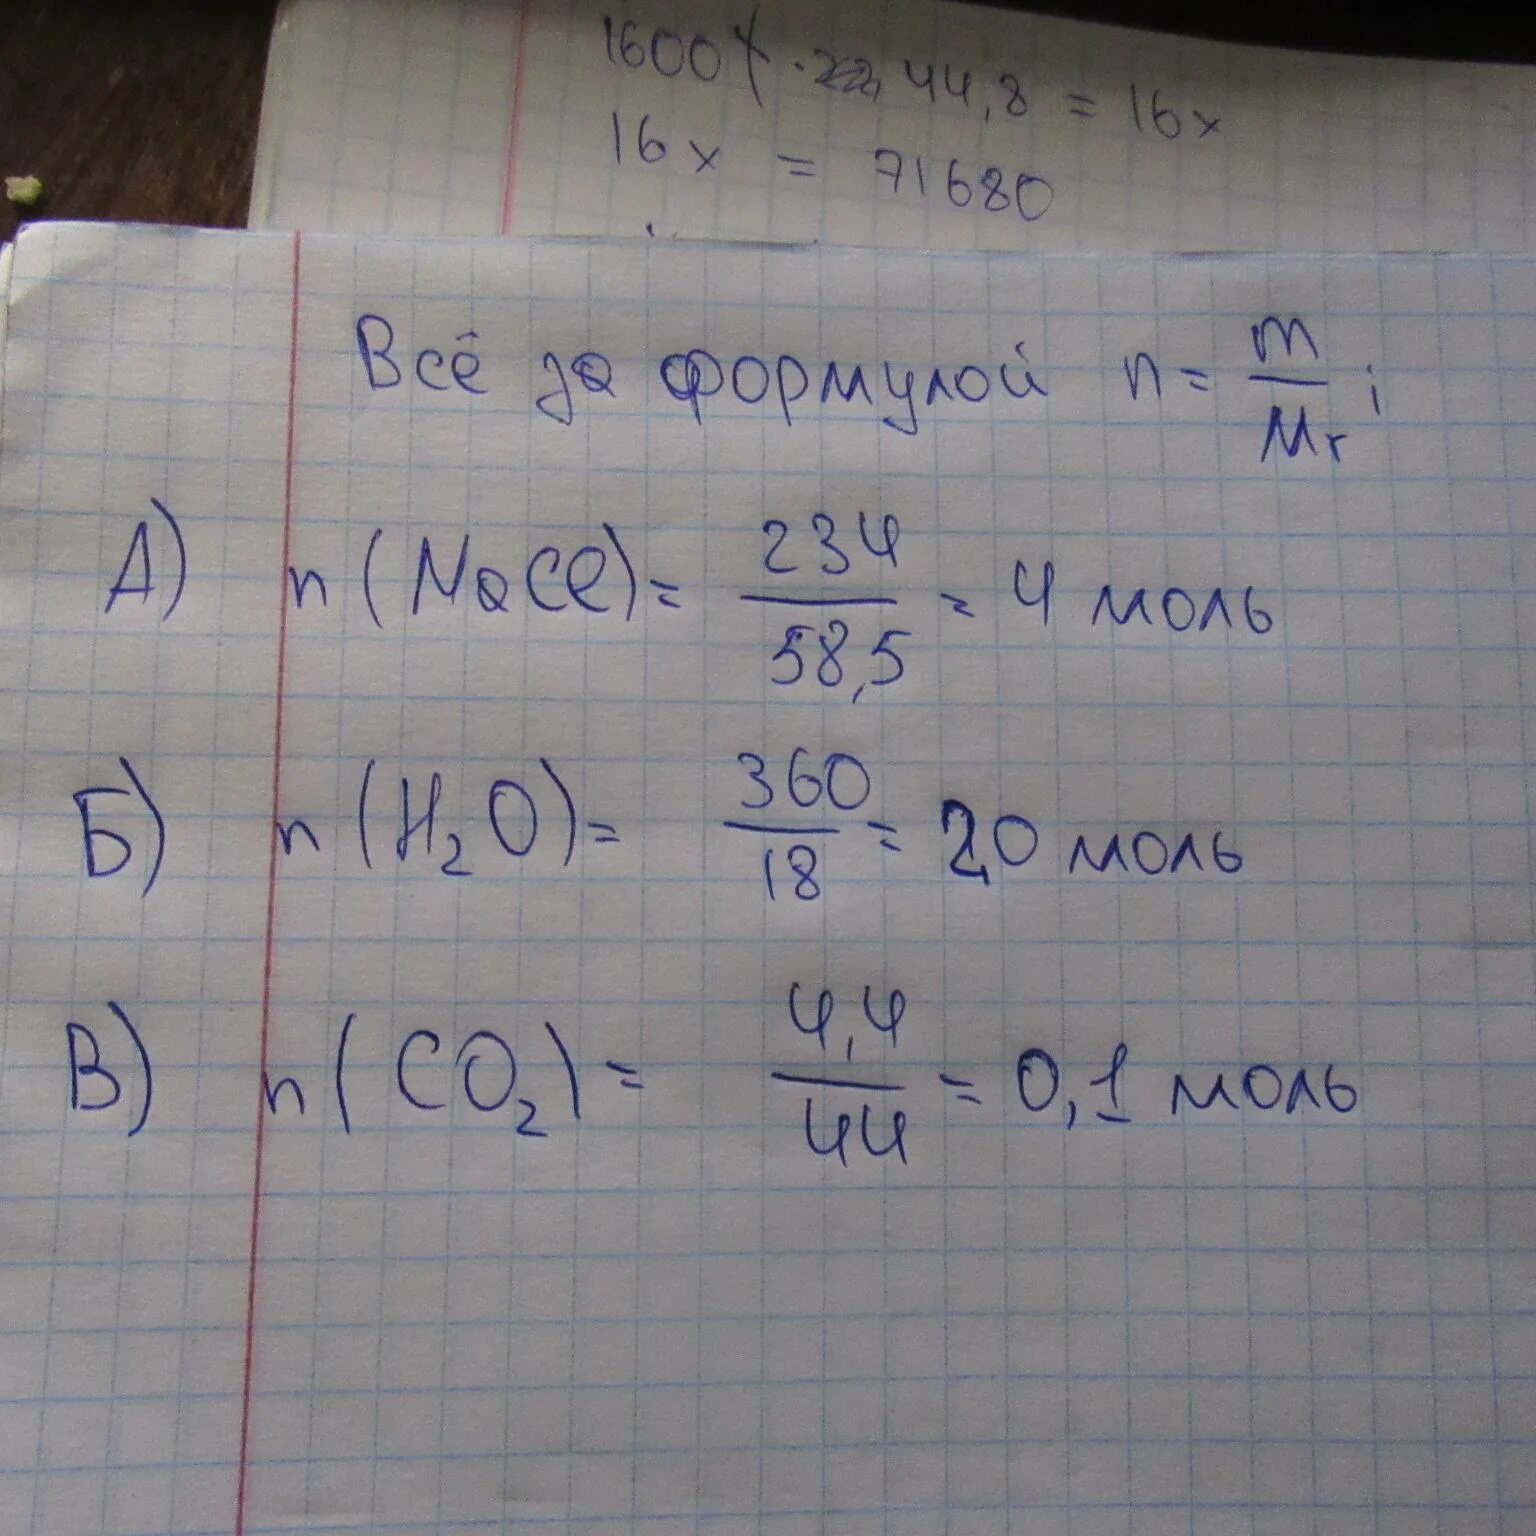 1600 · 44,8 = 16x
16x = 71680
Всё за формулой n = m/Mr ;
А) n(NaCl) = 234/58,5 = 4 моль
Б) n(H₂O) = 360/18 = 20 моль
В) n(CO₂) = 4,4/44 = 0,1 моль